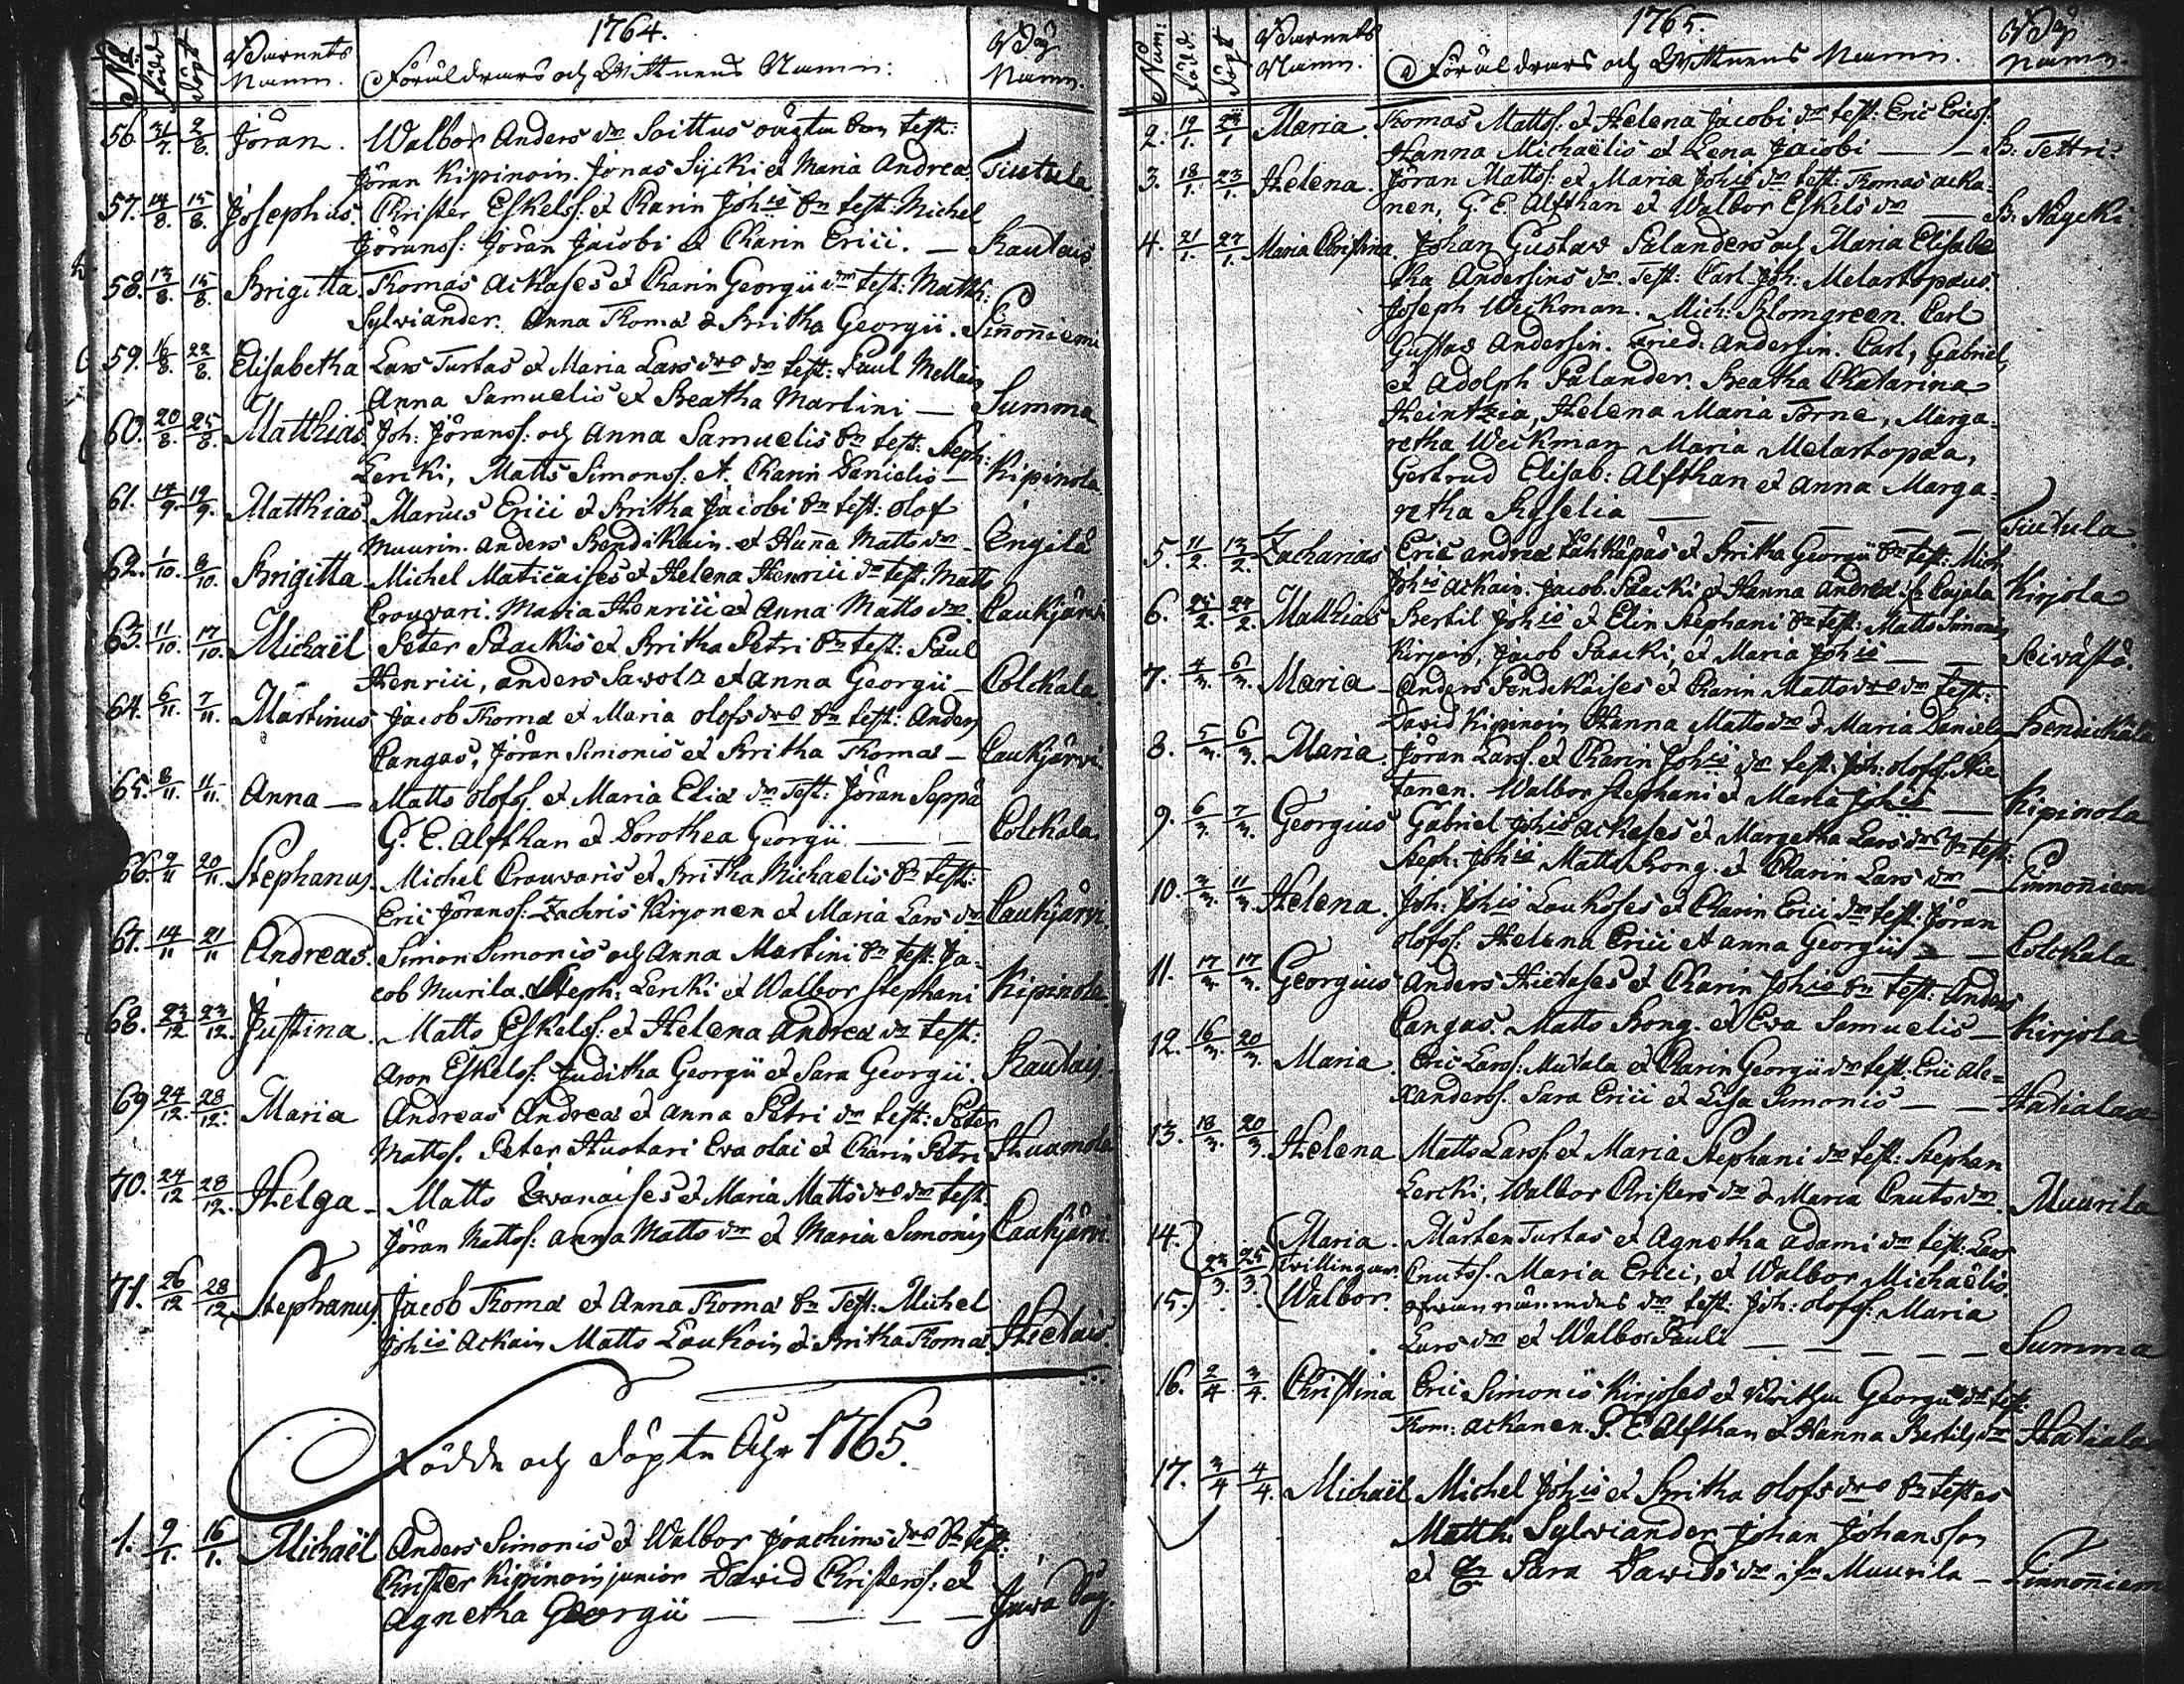 1764.
No. född döpt Barnets Namn. Föräldrars och Wittnens Namn: Byn Namn.
56. 31/7. 2/8. Jöran. Walbor Anders dr Soittus oägta son test:
Jöran Kipinoin. Jonas Sycki et Maria Andreæ. Tiutula
57. 14/8. 15/8. Josephus. Christer Eskelss: et Karin Johis Sn test: Michel
Jöranss: Jöran Jacobi et Karin Erici. — Kautais
58. 13/8. 15/8. Brigitta. Thomas Ackases et Karin Georgii dr test: Matth:
Sylviander. Anna Thomæ & Britha Georgii. Sinoniemi
59. 16/8. 22/8. Elisabetha Lars Turtas et Maria Lars dr0 dr test: Paul Mellain
Anna Samuelis et Beatha Martini — Summa
60. 20/8. 25/8. Matthias. Joh: Jöranss: och Anna Samuelis Sn test: Steph:
Lercki, Matts Simonss: et. Karin Danielis — Kipinola
61. 14/9. 19/9. Matthias. Marcus Erici et Britha Jacobi Sn test: Olof
Muurin. Anders Bendikain. et Hanna Matts dr — Engilä
62. 1/10. 8/10. Brigitta Michel Maticaises et Helena Henrici dr test: Matts
Crouvari. Maria Henrici et Anna Matts dr. Caukjärvi
63. 11/10. 17/10. Michaël Peter Paackis et Britha Petri Sn test: Paul
Henrici, anders Sawol et Anna Georgii — Colckala
64. 6/11. 7/11. Martinus Jacob Thomæ et Maria Olofs dr0 Sn test: Anders
Cangas, Jöran Simonis et Britha Thomas — Caukjärvi
65. 8/11. 11/11. Anna — Matts Olofss. et Maria Eliæ dr Test: Jöran Seppä
G. E. Alfthan et Dorothea Georgii — — Colckala
66. 9/11 20/11. Stephanus. Michel Crouvaris et Britha Michaelis Sn test:
Eric Jöranss: Zachris Kirjonen et Maria Lars dr Caukjärvi.
67. 14/11 21/11 Andreas. Simon Simonis och Anna Martini Sn test: Ja-
cob Murila. Steph: Lercki et Walbor Stephani Kipinola
68. 23/12 23/12. Justina. Matts Eskelss: et Helena Andreæ dr test:
Aron Eskelss: Juditha Georgii et Sara Georgii. Kautais.
69 24/12. 28/12. Maria Andreas Andreæ et Anna Petri dr test: Peter
Mattss. Peter Huotari Eva Olai et Karin Petri Huamola
70. 24/12 28/12. Helga — Matts Ewanaises et Maria Matts dr0 dr test.
Jöran Mattss: Anna Matts dr et Maria Simonis Caukjärvi.
71. 26/12 28/12 Stephanus. Jacob Thomæ et Anna Thomæ Sn Test: Michel
Johis Ackain Matts Loukoin & Britha Thomæ. Hietais.
Födde och döpte Åhr 1765.
1. 9/1. 16/1. Michaël Anders Simonis et Walbor Joachims dr0 Sn test:
Christer Kipinoin junior David Christerss: et
Agnetha Georgii — — — —
1765.
Num: född döpt Barnets Namn. Föräldrars och Wittnens Namn. Byn namn.
2. 19/1. 23/1 Maria. Thomas Mattss: et Helena Jacobi dr test: Eric Ericss:
Hanna Michaëlis et Lena Jacobi — — B: Tettri.
3. 18/1. 23/1. Helena. Jöran Mattss: et Maria Johis dr test: Thomas acka-
nen, G. E. Alfthan et Walbor Eskels dr — B: Näycki
4. 21/1. 27/1. Maria Christina. Johan Gustav Salanders och Maria Elisabe
tha Andersins dr. Test: Carl Joh: Melartopæus.
Joseph Weckman. Mich: Blomgreen. Carl
Gustav Andersin. Fried: Andersin. Carl, Gabriel,
et Adolph Salander. Beatha Chatarina
Heintzia, Helena Maria Törne, Marga-
retha Weckman Maria Melartopæa,
Gertrud Elisab: Alfthan et Anna Marga-
retha Roselia — — — — Tiutula
5. 11/2. 13/2. Zacharias Eric andreæ Tähkäpäs et Britha Georgii Sn test: Mich
Johis Ackain. Jacob. Paacki et Hanna Andreæ Kirjola
6. 25/2. 27/2. Matthias Bertil Johis et Elin Stephani Sn test: Matts Simonis
Kirjoin, Jacob Paacki, et Maria Johis — — Seivästö.
7. 4/3. 6/3. Maria — Anders Pendikäises et Karin Matts dr0 dr test:
David Kipinoin Hanna Matts dr & Maria Daniels Bendickälä
8. 5/3. 6/3. Maria. Jöran Larss. et Karin Johis dr test: Joh: Olofss. Hie
tanen. Walbor Stephani et Maria Johis — Kipinola
9. 6/3. 7/3. Georgius Gabriel Johis Ackases et Margetha Lars dr0 Sn test:
Steph: Johis Matts Kong. et Karin Lars dr — Linnoniem
10. 3/3. 11/3. Helena. Joh: Johis Loukoses et Karin Erici dr test. Jöran
Olofss: Helena Erici et Anna Georgii — — Colckala
11. 17/3. 17/3. Georgius Anders Hietases et Karin Johis Sn test: Anders
Cangas. Matts Kong. et Eva Samuelis — Kirjola
12. 16/3. 20/3. Maria. Eric Larss: Mutala et Karin Georgii dr test: Eric Ale-
xanderss. Sara Erici et Lisa Simonis — — Hatialaa
13. 18/3. 20/3. Helena Matts Larss. et Maria Stephani dr test: Stephan
Lercki, Walbor Christers dr & Maria Cnuts dr. Muurila
14. Maria. Mårten Turtas et Agnetha Adami dr test: Lars
23/3. 25/3. Tvillingar. Cnutss. Maria Erici, et Walbor Michaëlis.
15. Walbor. ofvannämndes dr test: Joh: Olofss: Maria
Lars dr et Walbor Pauli — — — — Summa
16. 2/4 3/4. Christina Eric Simonis Kirjoses et Britha Georgii dr test:
Thom: Ackanen. G. E. Alfthan et Hanna Bertils dr Hatiala
17. 3/4 4/4. Michaël Michel Johis et Britha Olofs dr0 Sn testes
Matth. Sylviander Johan Johansson
et Sara Davids dr Muurila — Linnoniem